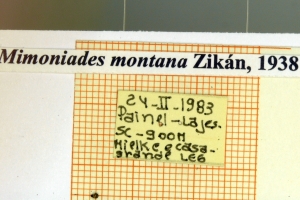 Mimoniades montana Zikán, 1938
24-II-1983
Painel-Lajes.
SC-900M
Mielke e casa-
grande LEG